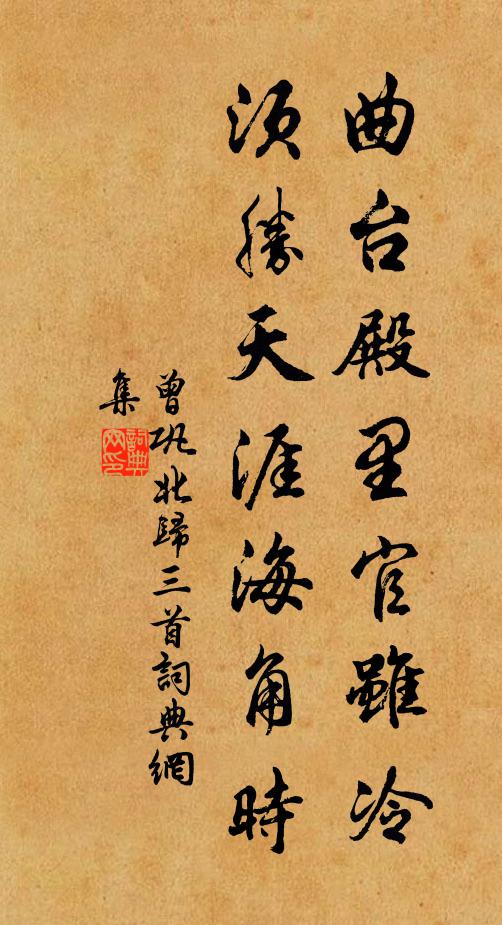 曲台殿里官雖冷
須勝天涯海角時
曾巩北歸三首詞典網
集
詞典
网印